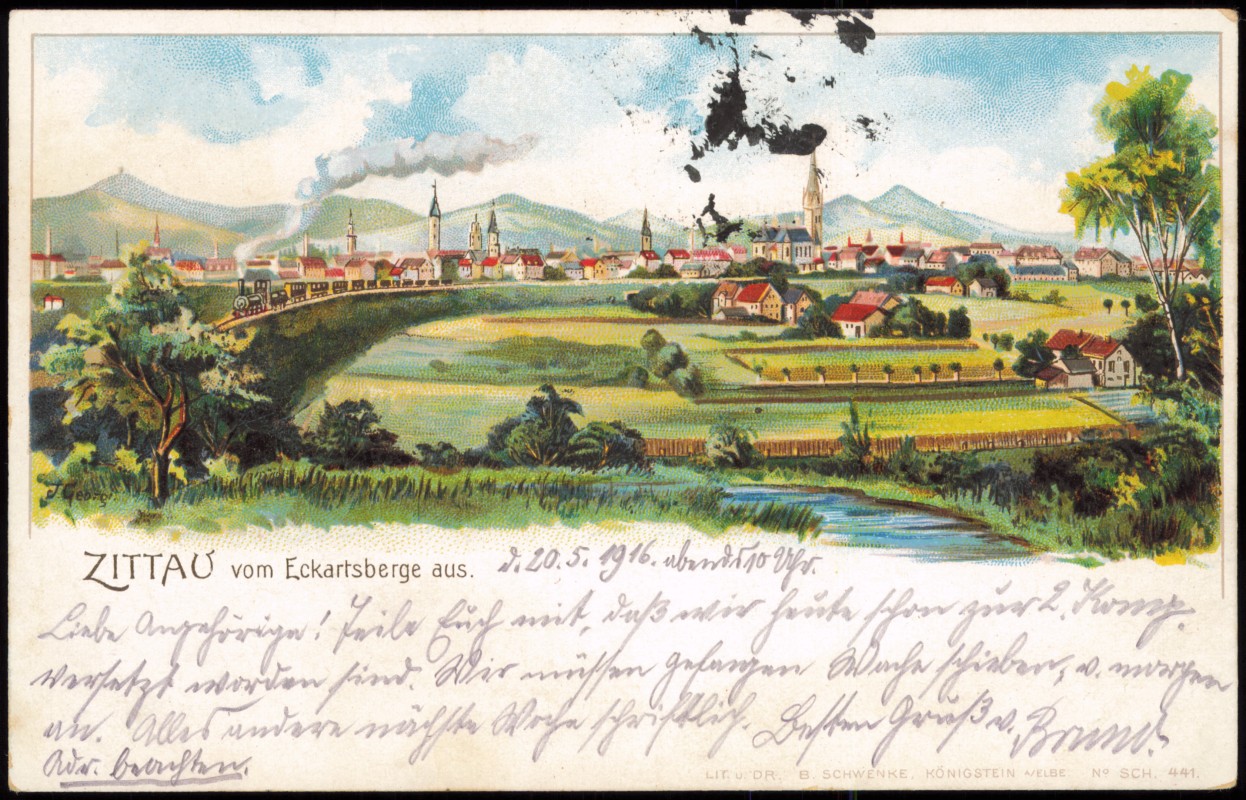 J. Georgi
ZITTAU vom Eckartsberge aus. d. 20.5.1916. abends 10 Uhr.
Liebe Angehörige! Teile Euch mit, daß wir heute schon zur 2. Komp.
versetzt worden sind. Wir müssen gefangen Wache schieben, v. morgen
an. Alles andere nächste Woche schriftlich. Besten Gruß v.
Adr. beachten.
LIT. u. DR. B. SCHWENKE, KÖNIGSTEIN A/ELBE No SCH. 441.